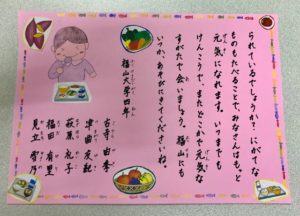 られているでしょうか？にがてな
ものもたべることで、みなさんはもっと
元気になれます。いつまでも
けんこうで、またどこかで元気な
すがたで会いましょう。福山にも
いつかあそびにきてくださいね。
福山大学四年
古寺 由季
津田 友紀
萩原 礼子
福田 有里
見立 智乃